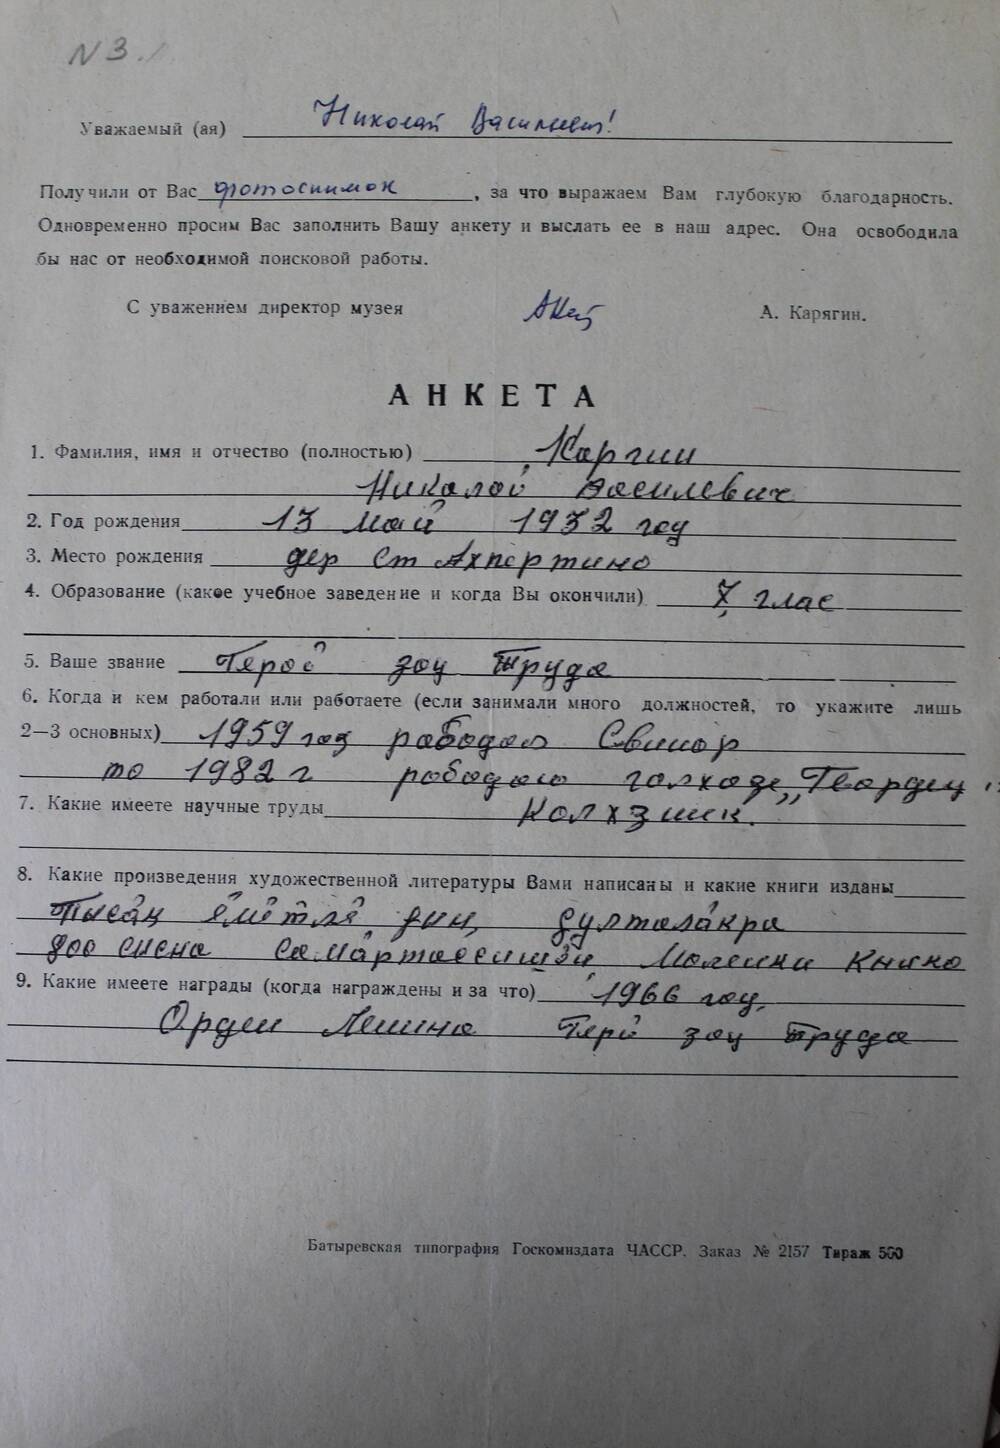 N 3.
Уважаемый (ая) Николай Васильевич!
Получили от Вас фотоснимок, за что выражаем Вам глубокую благодарность.
Одновременно просим Вас заполнить Вашу анкету и выслать ее в наш адрес. Она освободила
бы нас от необходимой поисковой работы.
С уважением директор музея А. Карягин.
АНКЕТА
1. Фамилия, имя и отчество (полностью) Каргин
Николай Василевич
2. Год рождения 13 май 1932 год
3. Место рождения дер Ст Ахпертино
4. Образование (какое учебное заведение и когда Вы окончили) 7 глас
5. Ваше звание Герой зоц Труда
6. Когда и кем работали или работаете (если занимали много должностей, то укажите лишь
2—3 основных) 1959 год рабодал Свинор
то 1982 г рободаю голходе „Гвардец"
7. Какие имеете научные труды Колхзник.
8. Какие произведения художественной литературы Вами написаны и какие книги изданы
дин,
Малинки Книно
9. Какие имеете награды (когда награждены и за что) 1966 год,
Орден Ленина Герй зоц Труда
Батыревская типография Госкомиздата ЧАССР. Заказ № 2157 Тираж 500